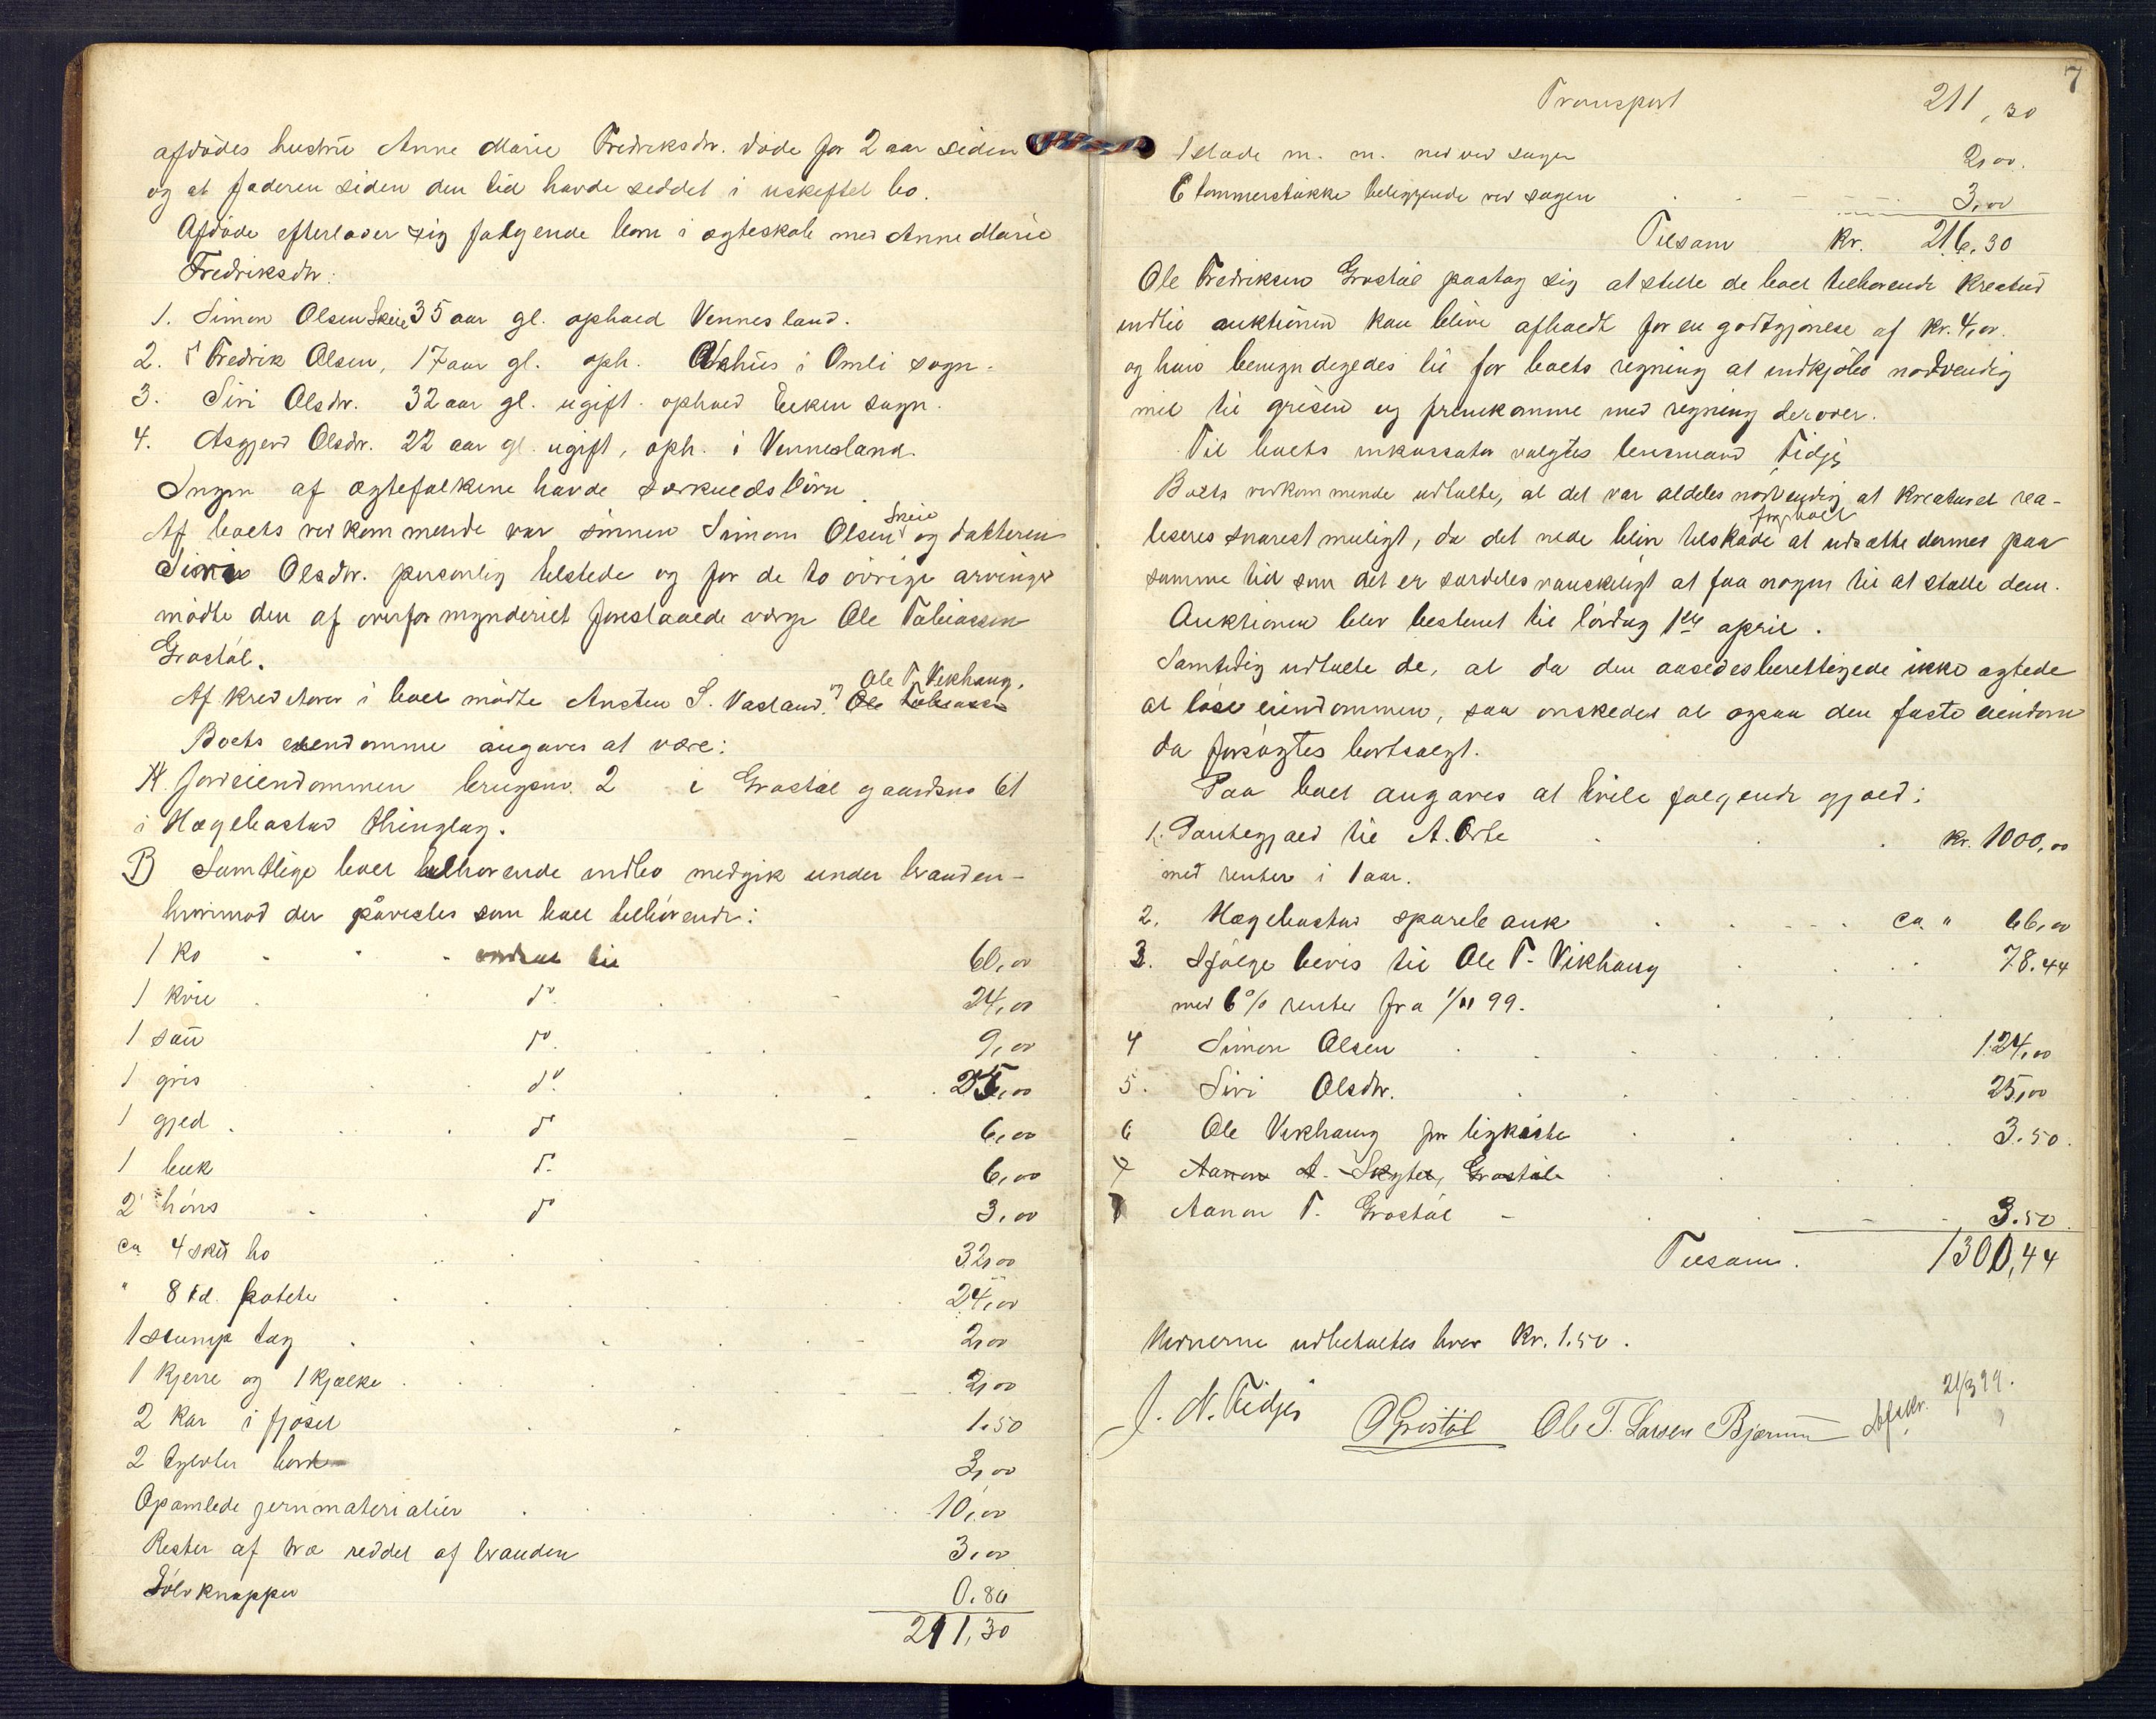 afdødes hustru Anne Marie Fredriksdr. døde for 2 aar siden
og at faderen siden den tid havde seddet i uskeftet bo.
Afdøde efterlader sig følgende børn i ægteskab med Anne Marie
Fredriksdr:
1. Simon Olsen Skeie 35 aar gl. ophold Vennesland.
2. Fredrik Olsen, 17 aar gl. oph. i Omli sogn.
3. Siri Olsdr. 32 aar gl. ugift. ophold Eeken sogn.
4. Asgjerd Olsdr. 22 aar gl. ugift, oph. i Vennesland.
Ingen af ægtefolkene havde særkuldsbørn.
Af boets vedkommende var sønnen Simon Olsen Skeie og datteren
Siri Olsdr. personlig tilstede og for de to øvrige arvinger
mødte den af overformynderiet foreslaaede værge Ole Tobiassen
Grostøl.
Af kreditorer i boet mødte Ansten S. Vasland og Ole T. Vikhaug.
Boets eiendomme angaves at være:
A. Jordeiendommen brugsno. 2 i Grostøl gaardsno 61
i Hægebostad thinglag.
B) Samtlige boet tilhørende indbo medgik under branden
hvorimod der påvistes som boet tilhørende:
1 ko vurdret til 60,00
1 kvie do 24,00
1 sau do. 9,00
1 gris do. 25,00
1 gjed do 6,00
1 buk do. 6,00
2 høns do 3,00
ca 4 skp hø 32,00
" 8 td. poteter 24,00
1 stump tag 2,00
1 kjerre og 1 kjælke 2,00
2 kar i fjøset 1.50
2 tylvter bord 3,00
Opsamlede jernmaterialier 10,00
Rester af træ reddet af branden 3,00
Sølvknapper 0.80
211,30
7
Transport 211,30
1 slæde m. m. ned ved sagen 2,00.
6 tømmerstokke beliggende ved sagen 3,00
Tilsam kr. 216,30
Ole Fredriksen Grostøl paatog sig at stelle de boet tilhørende kreatur
indtil auktionen kan blive afholdt for en godtgjørelse af kr. 4,00.
og han bemyndigedes til for boets regning at indkjøbe nødvendig
mel til grisen og fremkomme med regning derover.
Til boets inkassator valgtes lensmand Tidjs
Boets vedkommende udtalte, at det var aldeles nødvendig at kreaturet rea-
liseres snarest muligt, da det vilde blive tilskade for boet at udsætte dermed paa
samme tid som det er særdeles vanskeligt at faa nogen til at stelle dem.
Auktionen blev bestemt til lørdag 1ste april.
Samtidig udtalte de, at da den aasædesberettigede ikke agtede
at løse eiendommen, saa ønskedes at ogsaa den faste eiendom
da forsøgtes bortsolgt.
Paa boet angaves at hvile følgende gjæld:
1. Pantegjæld til A. Orte kr. 1000,00
med renter i 1 aar.
2. Hægebostad sparebank ca. " 66,00
3. Ifølge bevis til Ole T. Vikhaug 78.44
med 6% renter fra 1/11 99.
4 Simon Olsen 124,00
5. Siri Olsdr. 25,00
6 Ole Vikhaug for ligkiste 3.50.
7 Aanon A. Skyter, Grostøl
7 Aanon T. Grostøl 3.50.
Tilsam. 1300,44
Vidnerne udbetaltes hver kr. 1.50.
J. N. Tidjs OGrostøl Ole T. Larsen Bjærum Afskr. 21/3 99.